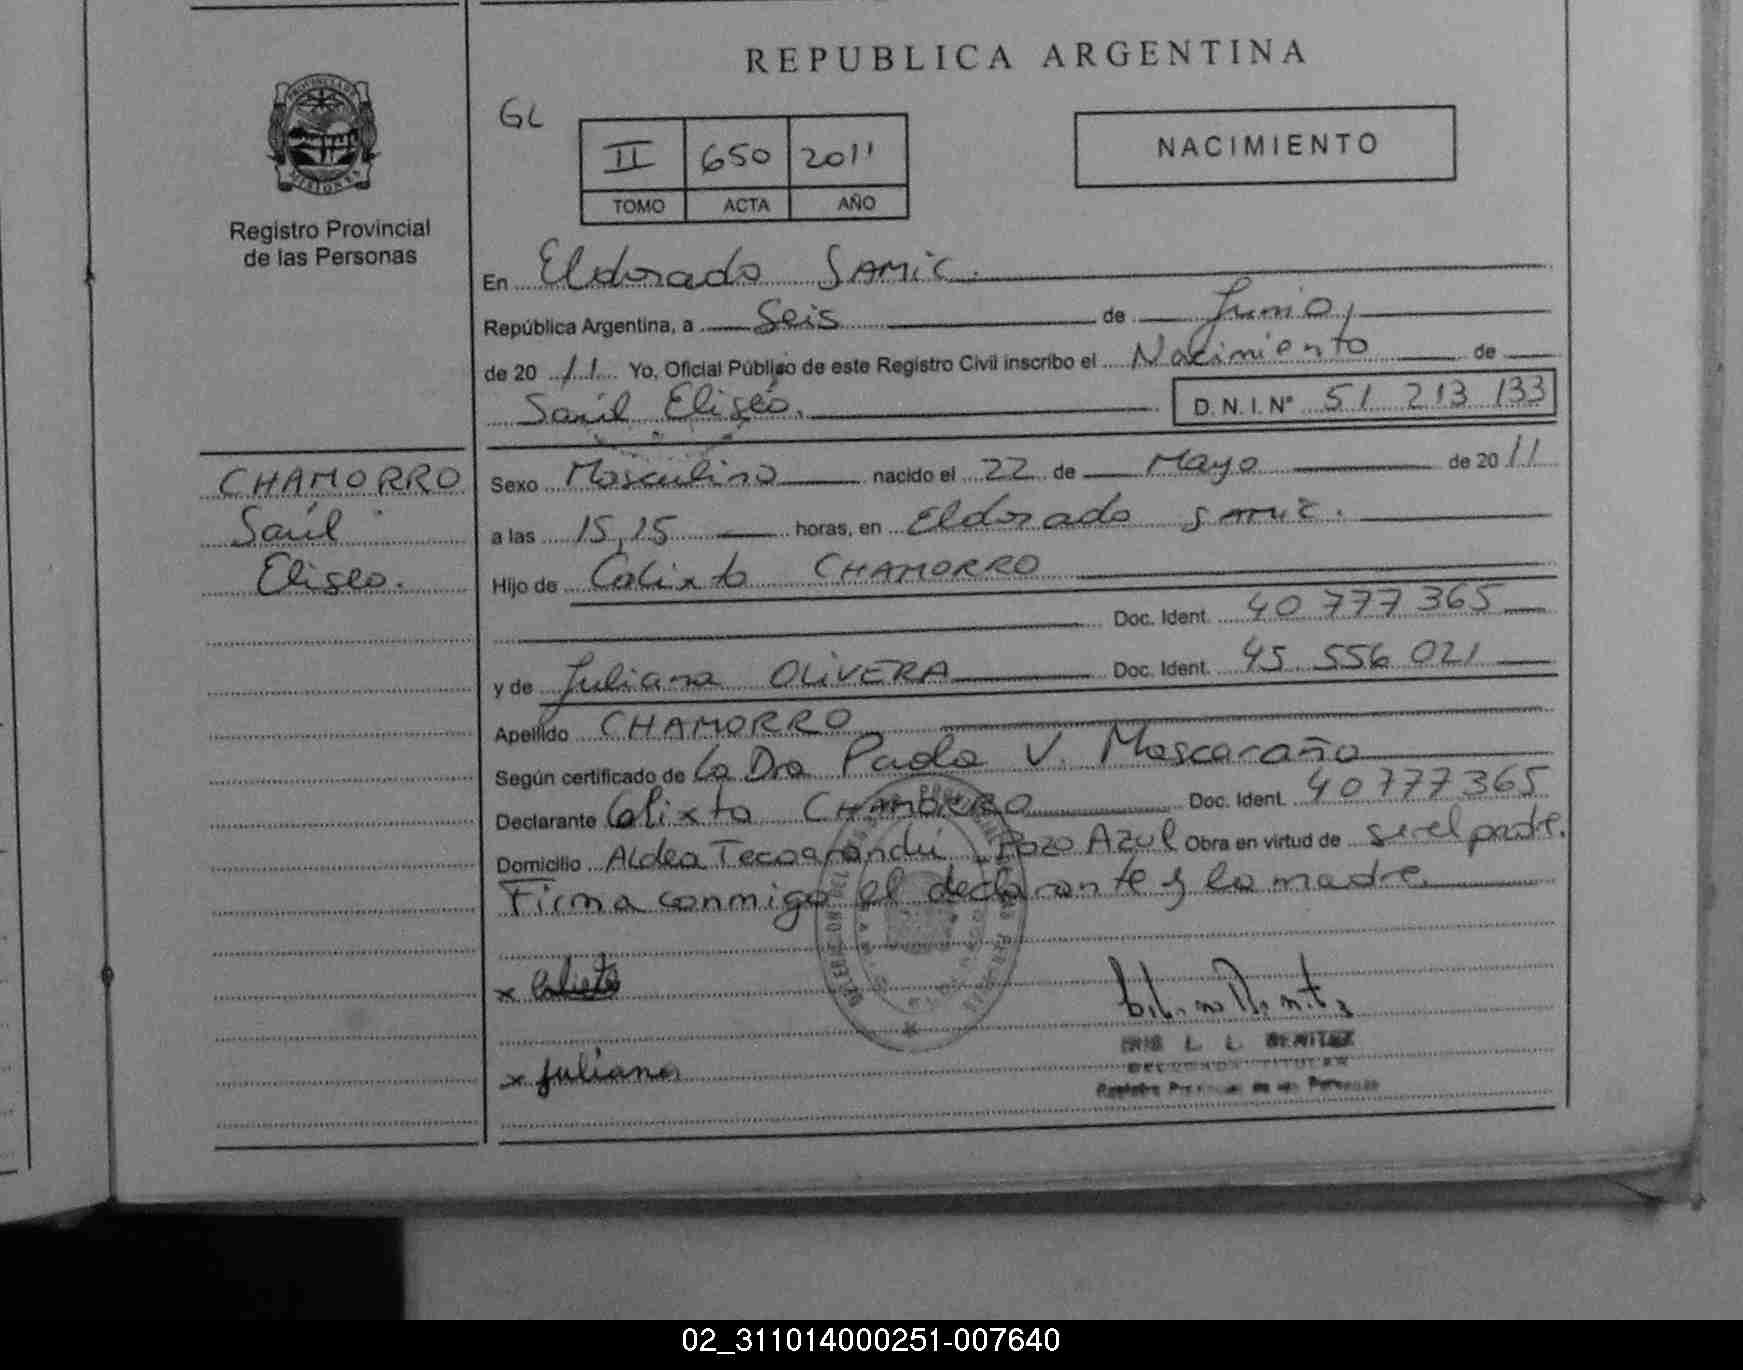 REPUBLICA ARGENTINA
PROVINCIA DE
MISIONES
Registro Provincial
de las Personas
GL
II 650 2011
TOMO ACTA AÑO
NACIMIENTO
En Eldorado SAMIC.
República Argentina, a Seis de Junio,
de 20 11 Yo, Oficial Público de este Registro Civil inscribo el Nacimiento de
Saúl Eliseo. D.N.I. Nº 51 213 133
CHAMORRO
Saúl
Eliseo.
Sexo Masculino nacido el 22 de Mayo de 20 11
a las 15,15 horas, en Eldorado samic.
Hijo de Calixto CHAMORRO
Doc. Ident. 40 777 365
y de Juliana OLIVERA Doc. Ident. 45 556 021
Apellido CHAMORRO
Según certificado de La Dra Paola V. Mascaraño
Declarante Calixto CHAMORRO Doc. Ident. 40777365
Domicilio Aldea Tecoarandú Pozo Azul Obra en virtud de ser el padre.
Firma conmigo el declarante y la madre.
x Calixto
x juliana
L. L. BENITEZ
Registro Provincial de las Personas
02_311014000251-007640